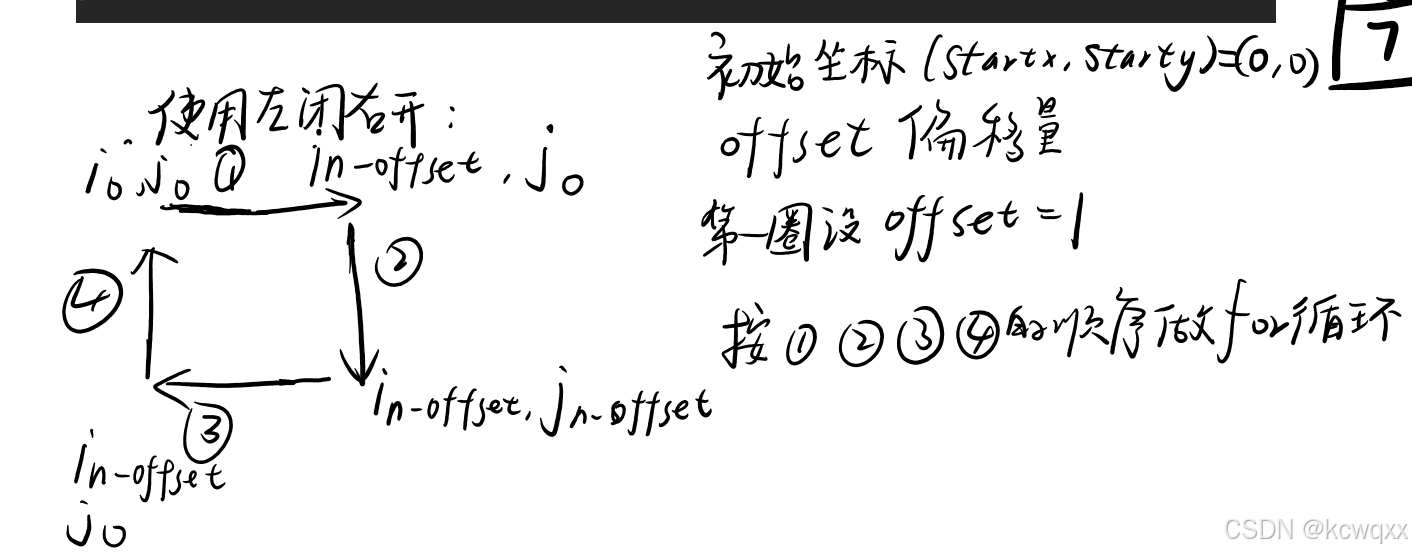 使用左闭右开：
i0,j0 ① in-offset,j0
②
④
in-offset,jn-offset
③
in-offset
j0
初始坐标(startx,starty)=(0,0)
7
offset 偏移量
第一圈设 offset=1
按①②③④的顺序做for循环
CSDN @kcwqxx